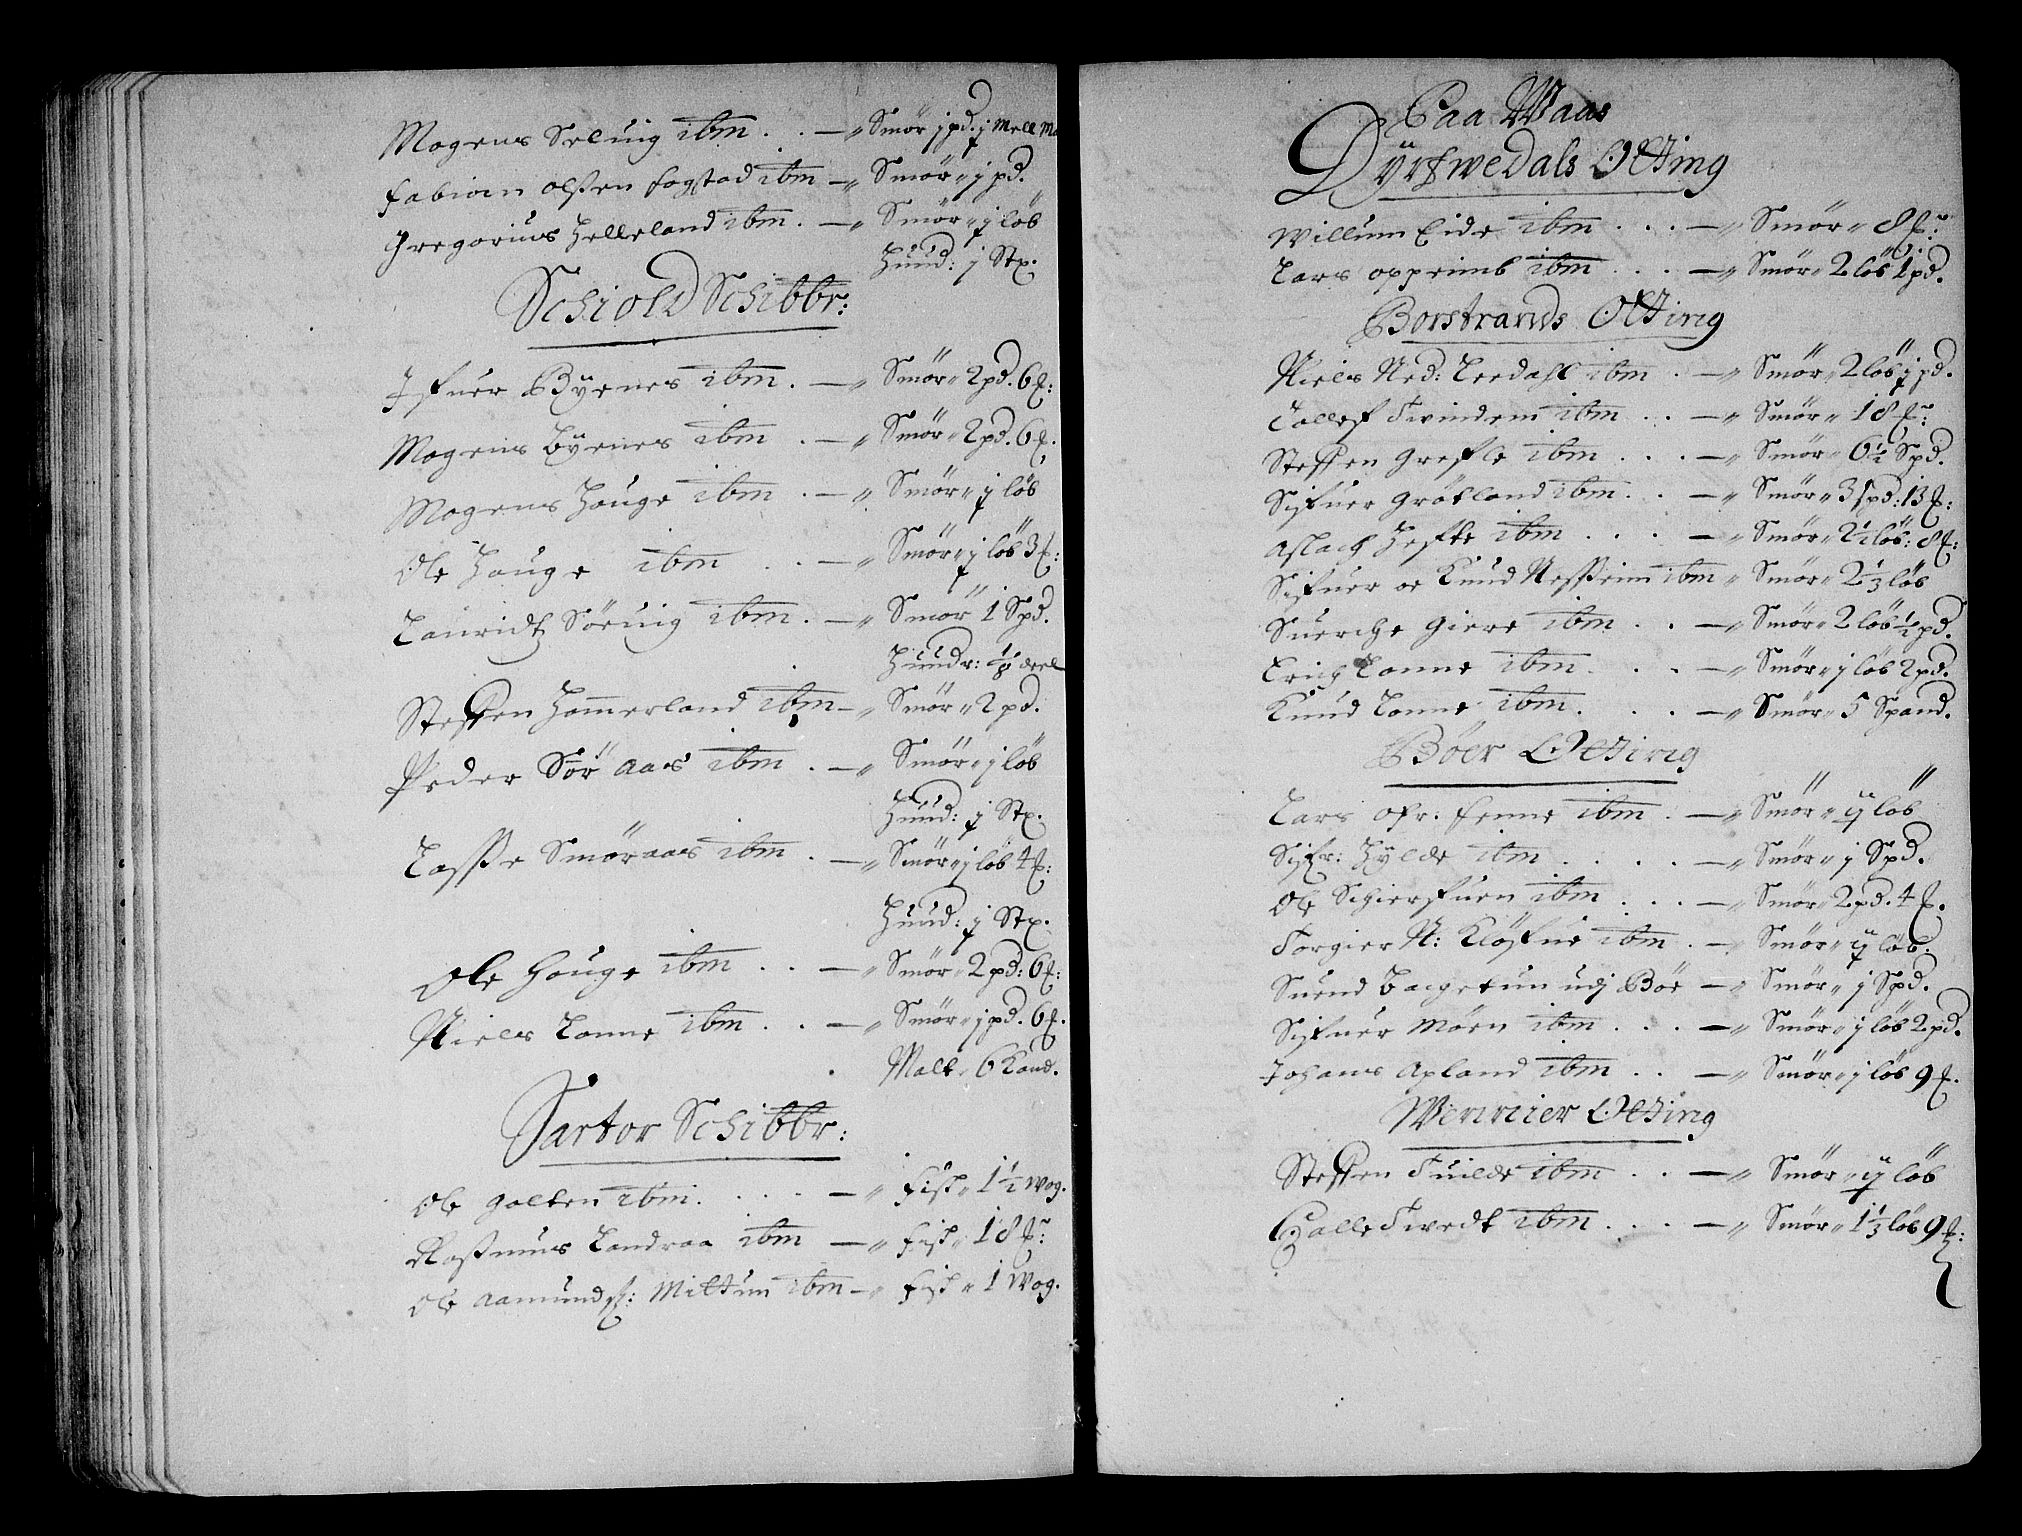 Mogens Selvig ibm . . — „ Smör j pd. j Mell
Fabian Olssen Fogstad ibm — „ Smör „ j pd.
Gregorius Helleland ibm . — „ Smör „ j löb
Huud: j Stx.
Schiold Schibbr:
Ifuer Byenes ibm . — „ Smör „ 2 pd. 6 £:
Mogens Byenes ibm . — „ Smör „ 2 pd. 6 £.
Mogens Houge ibm . — „ Smör „ j löb
Ole Houge ibm . . — „ Smör „ j löb 3 £:
Lauridtz Söruig ibm . — „ Smör 1 Spd.
Huudr: 1/8 deel
Steffen Hommerland ibm — „ Smör „ 2 pd.
Peder Sör aas ibm . — „ Smör „ j löb
Huud: j Stx.
Lasse Smöraas ibm . — „ Smör „ j löb 4 £:
Huud: j Stx.
Ole Houge ibm . . — „ Smör „ 2 pd: 6 £:
Niels Tonne ibm . . — „ Smör „ j pd. 6 £.
Malt „ 6 Kand.
Sartor Schibbr:
Ole Golten ibm . . . . — „ Fisk „ 1 1/2 Wog.
Rasmus Landraa ibm — „ Fisk „ 18 £:
Ole Aamundss: Miltum ibm — „ Fisk „ 1 Wog.
Paa Waas
Dyrfwedals Otting
Willum Eide ibm . . . — „ Smör „ 8 £:
Lars Oppeimb ibm . . . — „ Smör „ 2 löb 1 pd.
Borstrands Otting
Niels Ned: Leedahl ibm . — „ Smör „ 2 löb j pd.
Tollef Tvindem ibm . . — „ Smör „ 18 £:
Steffen Grefle ibm . . . — „ Smör „ 6 1/2 Spd.
Sifuer Grötland ibm . . — „ Smör „ 3 Spd. 13 £:
Aslach Hefte ibm . . . . — „ Smör „ 2 1/2 löb: 8 £:
Sifuer oc Knud Nessheim ibm „ Smör „ 2 1/3 löb
Suerche Giere ibm . . — „ Smör „ 2 löb 1/2 pd.
Erich Lonne ibm . . . — „ Smör „ j löb 2 pd.
Knud Lonne ibm . . . — „ Smör „ 5 Spand.
Böer Otting
Lars Ofr: Fenne ibm . — „ Smör „ ij löb
Sifr: Hylde ibm . . . . — „ Smör „ j Spd.
Ole Schierfuen ibm . . . — „ Smör „ 2 pd. 4 £.
Torgier N: Klöfue ibm . — „ Smör „ ij löb.
Suend Bagetun udj Böe — „ Smör „ j Spd.
Sifuer Möen ibm . . . — „ Smör „ j löb 2 pd.
Johans Apland ibm . . — „ Smör „ j löb 9 £.
Winnier Otting
Steffen Tuilde ibm . . — „ Smör „ ij löb
Calle Tvedt ibm . . . — „ Smör „ 1 1/3 löb 9 £: